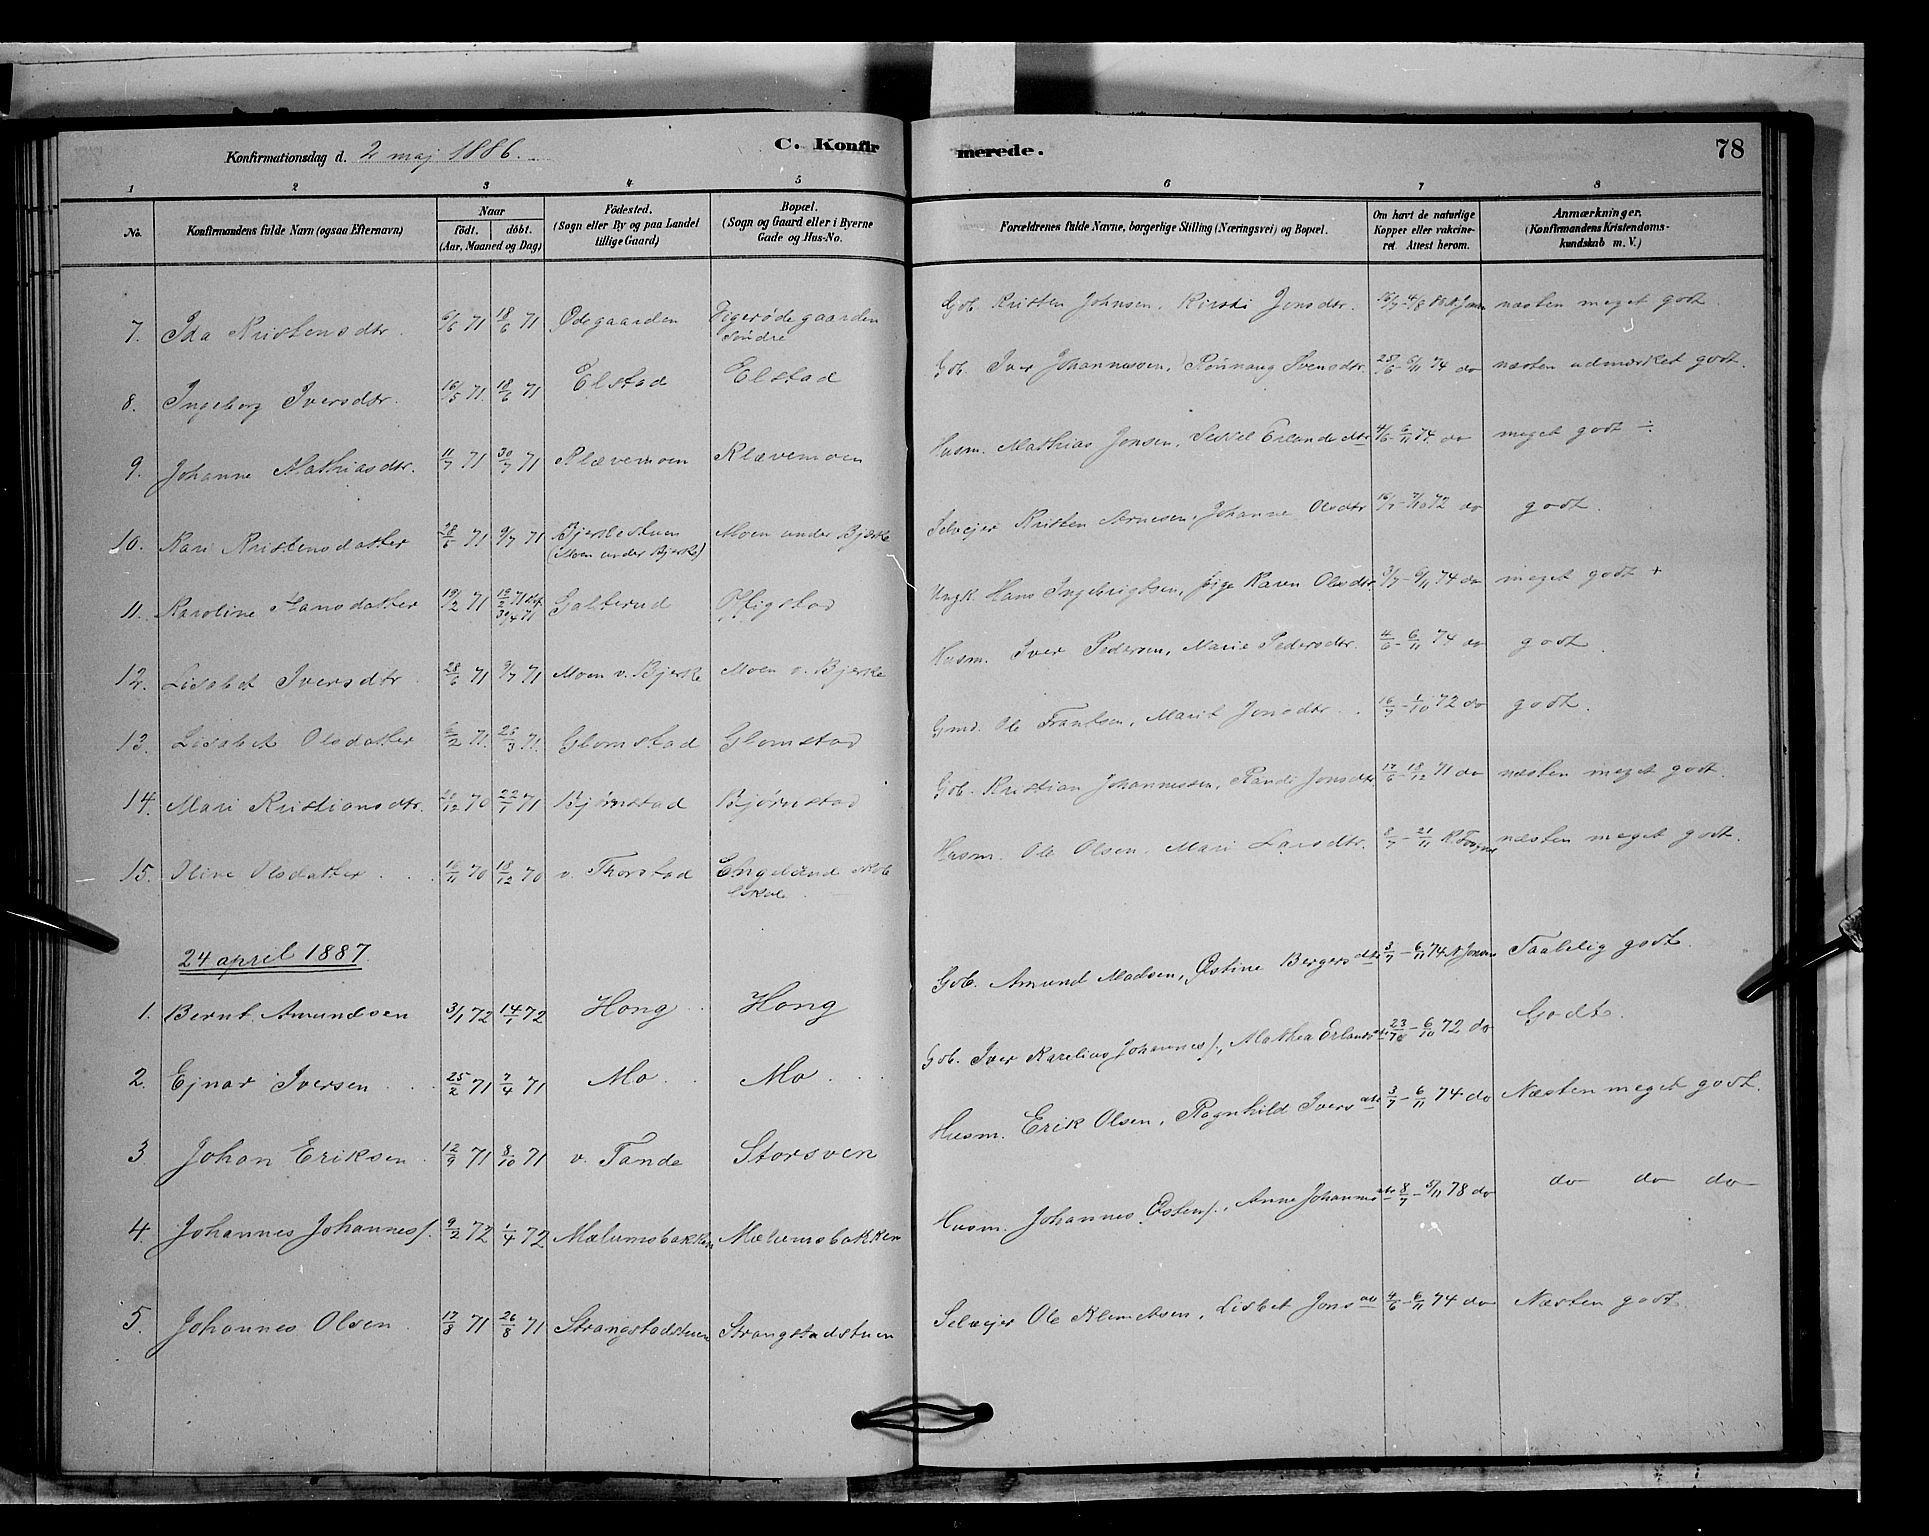 Konfirmationsdag d. 2 maj 1886.
C. Konfir
merede.
78
1 2 3 4 5 6 7 8
No.
Konfirmandens fulde Navn (ogsaa Efternavn)
Naar
födt. döbt.
(Aar, Maaned og Dag)
Födested.
(Sogn eller By og paa Landet
tillige Gaard)
Bopæl.
(Sogn og Gaard eller i Byerne
Gade og Hus-No.
Forældrenes fulde Navne, borgerlige Stilling (Næringsvei) og Bopæl.
Om havt de naturlige
Kopper eller vakcine-
ret. Attest herom.
Anmærkninger.
(Konfirmandens Kristendoms-
kundskab m. V.)
7. Ida Kristensdtr. 6/6 71 18/6 71 Odegaarden
Søndre
Gob. Kristen Johnsen, Kirsti Jonsdtr. næsten meget godt
8. Ingeborg Iversdtr. 16/5 71. 18/6 71 Elstad Elstad Gob. Iver Johannessen, Rønnaug Svensdtr. 25/6 - 6/11 74 do næsten udmærket godt.
9. Johanne Mathiasdtr. 11/7 71 30/7 71 Klævemoen Klævemoen Husm. Mathias Jonsen, Sissel Erlandsdtr 4/6 - 6/11 74 do meget godt ÷
10. Kari Kristensdatter 28/6 71 9/7 71 Bjerkestuen Moen under Bjerke
(Moen under Bjerke)
Selvejer Kristen Arnesen, Johanne Olsdtr 16/7 - 7/10 72 do godt.
11. Karoline Hansdatter 19/2 71 19/2 71
30/4 71
Galterud Offigstad Ungk. Hans Ingebrigtsen, pige Karen Olsdtr. 3/7 - 6/11 74 do meget godt +
12. Lisabet Iversdtr 28/6 71 9/7 71 Moen v. Bjerke Moen v. Bjerke Husm. Iver Pedersen, Marie Pedersdtr. 4/6 - 6/11 74 do godt.
13. Lisabet Olsdatter 71. 26/3 71. Glomstad Glomstad Gmd. Ole Frantsen, Marit Jonsdtr. 16/7 - 1/10 72 do godt.
14. Mari Kristiansdtr. 70 22/1 71 Bjørnstad Bjørnstad Gob. Kristian Johannessen, Randi Jonsdtr 17/6 - 18/12 71 do næsten meget godt.
15. Oline Olsdatter 16/11 70 18/12 70 v. Thorstad Engeland
Husm. Ole Olsen, Mari Larsdtr. 8/7 - 21/11 næsten meget godt.
24 april 1887.
1. Bernt Amundsen 3/1 72 14/1 72 Hong Hong Gob. Amund Madsen, Østine Bergersdtr 3/7 - 6/11 74 Taalelig godt.
2. Ejnar Iversen 25/2 71 7/4 71 Mo Mo Gob. Iver Karelius Johannes/., Mathea Erlandsdtr - 6/10 72 do Godt.
3 Johan Eriksen 12/9 71 8/10 71 v. Tande Storsven Husm. Erik Olsen, Ragnhild Iversdtr 3/7 - 6/11 74 do Næsten meget godt.
4 Johannes Johannes/. 9/2 72 1/4 72 Mælumsbakken Mælumsbakken Husm. Johannes Østens/., Anne Johannesdtr 8/7 - 5/11 78 do do do do
5. Johannes Olsen 17/8 71 26/8 71 Strangstadstuen Strangstadstuen Selvejer Ole Klemetsen, Lisbet Jonsdtr 4/6 - 6/11 74 do Næsten godt.